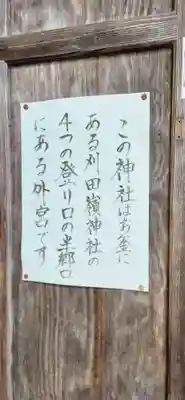 この神社はお釜に
ある刈田嶺神社の
4つの登り口の半郷口
にある外宮です